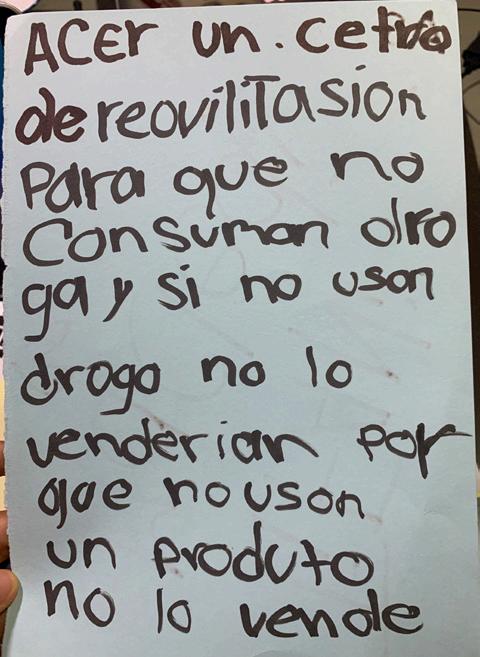 ACER un. cetro
de reovilitasion
para que no
consuman dro
ga y si no uson
drogo no lo
venderian por
que no uson
un produto
no lo vende